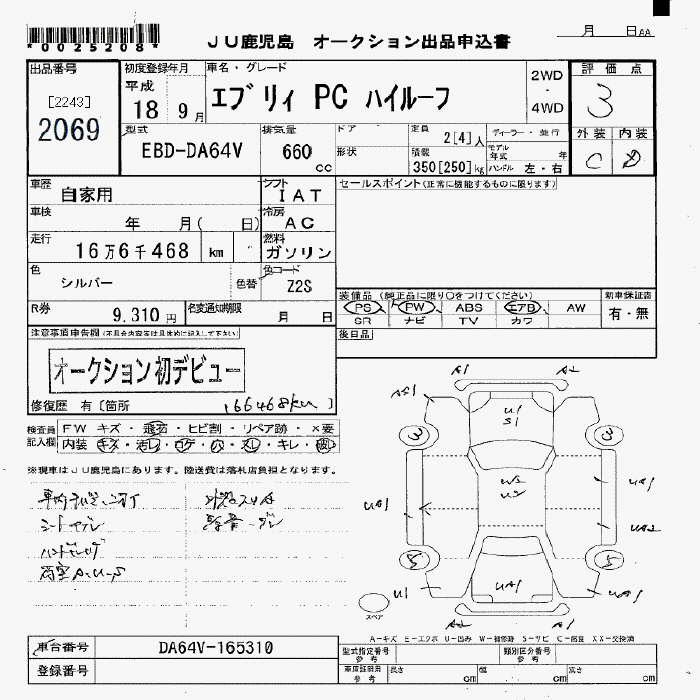 *0025208*
JU鹿児島 オークション出品申込書
月 日AA
出品番号
[2243]
2069
初度登録年月
平成
18 9月
車名・グレード
エブリィ PC ハイルーフ
2WD
・
4WD
評価点
3
外装 内装
C D
型式
EBD-DA64V
排気量
660
cc
ドア
形状
定員
2[4]人
積載
350[250]kg
ディーラー・並行
モデル年式 年
ハンドル 左・右
車歴
自家用
シフト
IAT
車検
年 月( 日)
冷房
AC
走行
16万6千468 km
燃料
ガソリン
色
シルバー
色替
色コード
Z2S
R券
9,310円
名変通知期限
月 日
セールスポイント(正常に機能するものに限ります)
装備品 (純正品に限り○をつけてください)
PS PW ABS エアB AW
SR ナビ TV カワ
新車保証書
有・無
後日品
注意事項申告欄(不具合内容等は具体的に記入して下さい)
オークション初デビュー
修復歴 有〔箇所 166468km 〕
検査員
記入欄
FW キズ・飛石・ヒビ割・リペア跡・×要
※現車はJU鹿児島にあります。陸送費は落札店負担となります。
A1 A2
U1
S1
3 3
UA1 UA1
UA2
5 5
U1 UA1 UA1
A2
スペア
A-キズ E-エクボ U-凹み W-補修跡 S-サビ C-腐食 XX-交換済
車台番号
DA64V-165310
登録番号
型式指定番号
参考
類別区分番号
参考
車庫証明用
参考
長さ cm
幅 cm
高さ cm